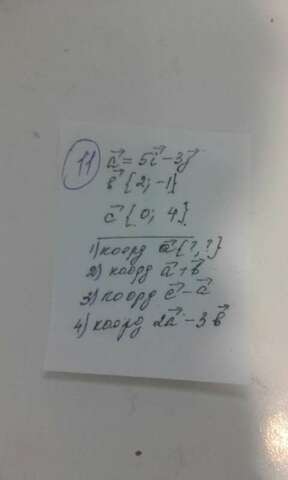 11
a⃗ = 5i⃗ - 3j⃗
в⃗ {2; -1}
c⃗ {0; 4}
1) коорд a⃗ {?, ?}
2) коорд a⃗ + в⃗
3) коорд c⃗ - a⃗
4) коорд 2a⃗ - 3в⃗